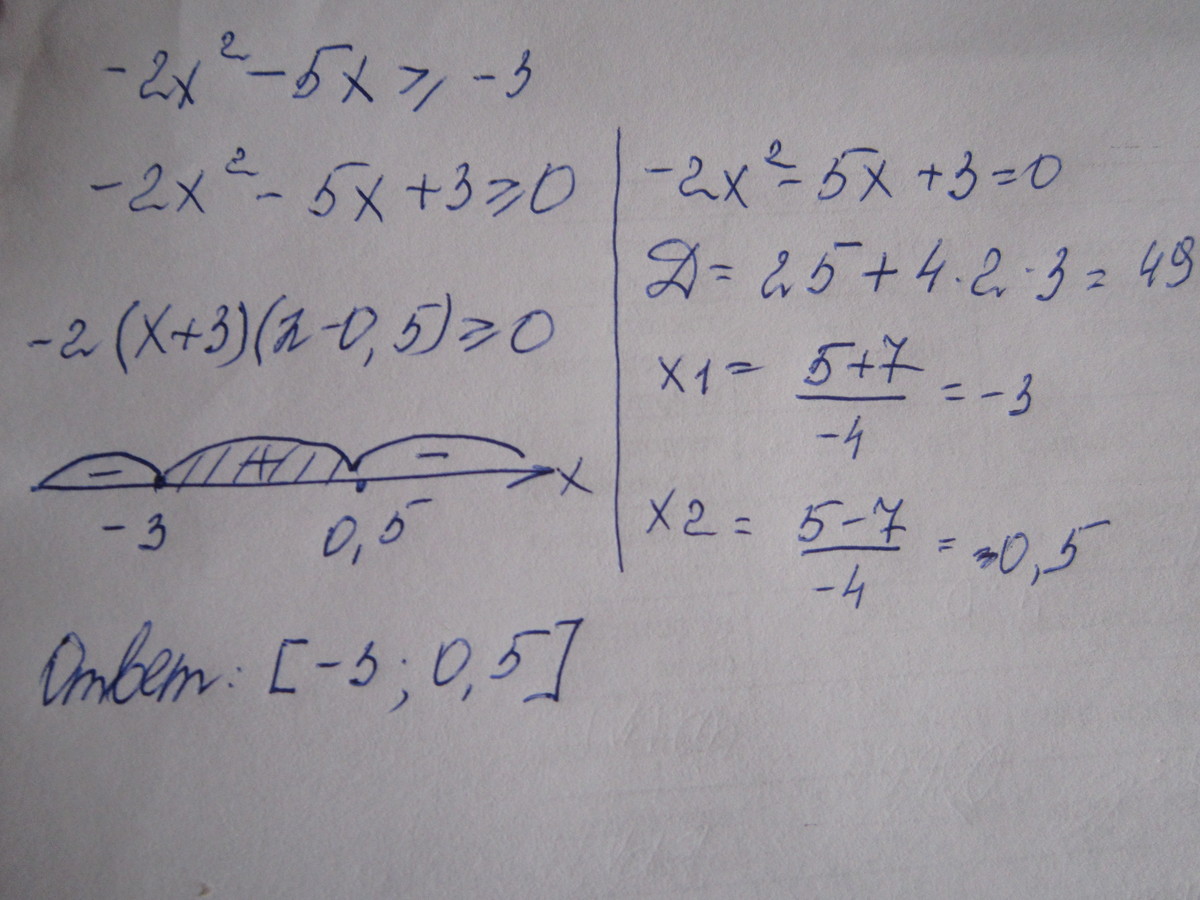 -2x² - 5x ≥ -3
-2x² - 5x + 3 ≥ 0
-2(x+3)(x-0,5) ≥ 0
- + - x
-3 0,5
Ответ: [-3; 0,5]
-2x² - 5x + 3 = 0
Д = 25 + 4·2·3 = 49
x1 = (5+7)/(-4) = -3
x2 = (5-7)/(-4) = 0,5